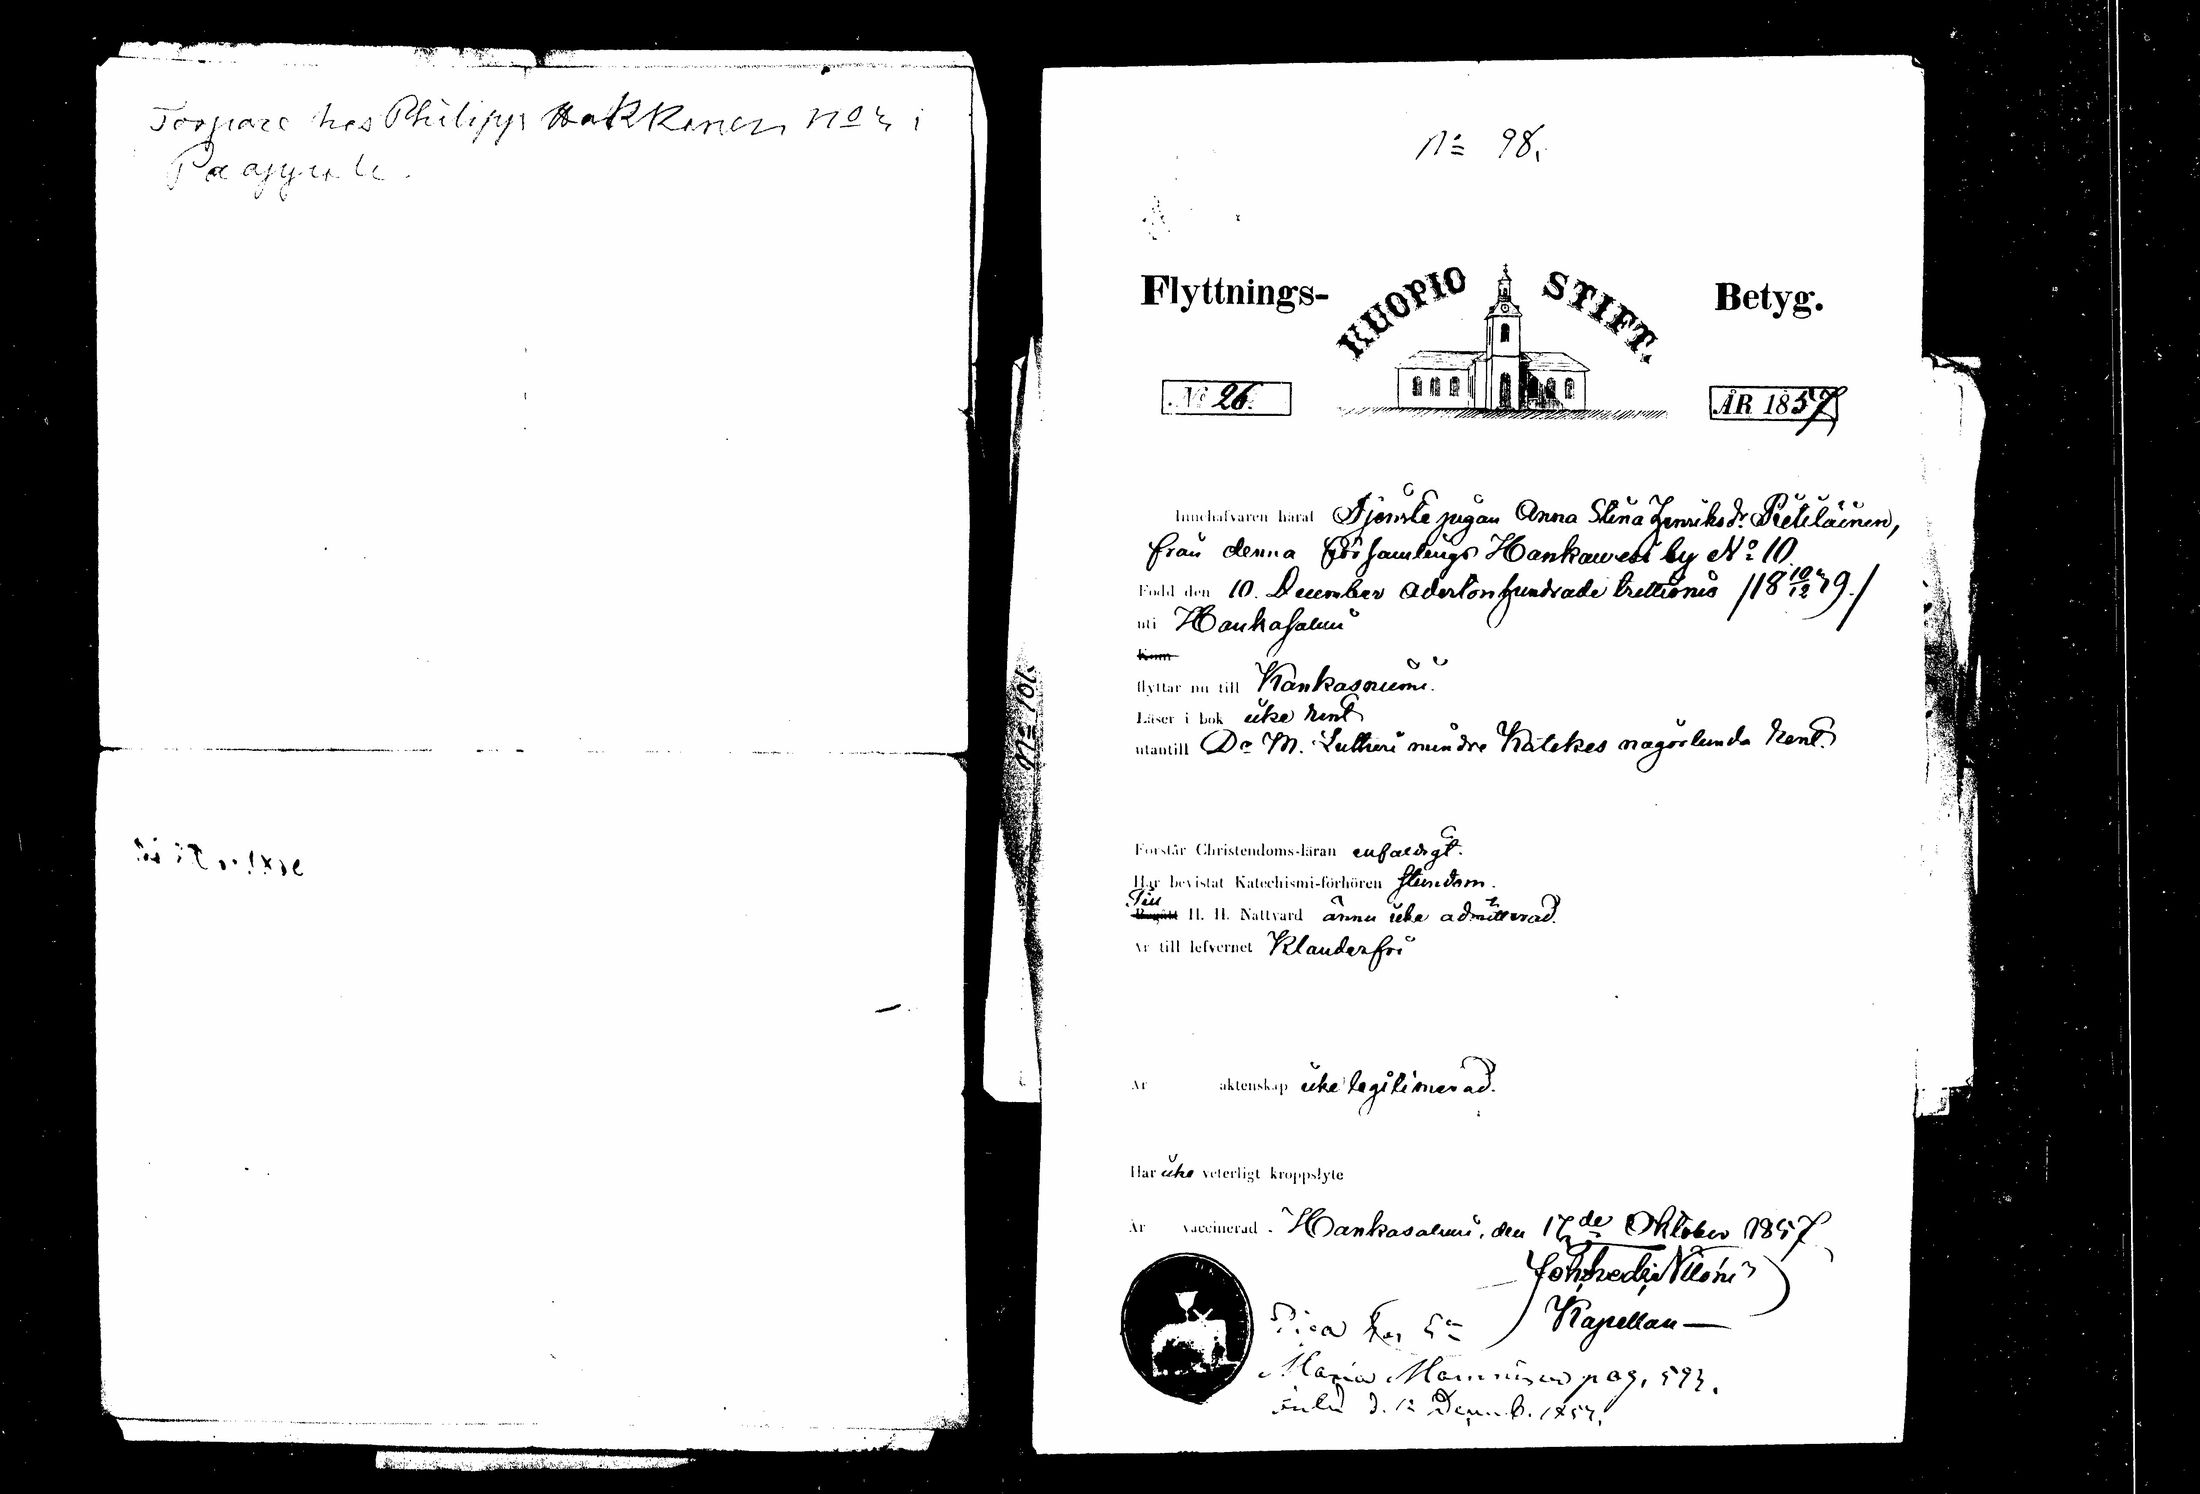 Torpare hos Philipp Hakkinen No 3 i
No 101.
No 98.
Flyttnings- KUOPIO STIFT. Betyg.
No 26. ÅR 1857
Innehafvaren häraf Tjenste pigan Anna Stina Henriksdr Pietiläinen,
från denna Församlings Hankavesi by No 10
Född den 10. December adertonhundrade trettionio /18 10/12 39./
uti Hankasalmi
Kom
flyttar nu till Kankasniemi.
Läser i bok icke rent
utantill Dr M. Lutheri mindre Katekes någorlunda rent.
Förstår Christendoms-läran enfaldigt.
Har bevistat Katechismi-förhören stundom.
Till Begått H. H. Nattvard ännu icke admitterad.
Är till lefvernet Klanderfri
Är äktenskap icke legitimerad.
Har icke veterligt kroppslyte
Är vaccinerad. Hankasalmi, den 17de Oktober 1857
Kapellan
Piga hos
Maria Manninen pag. 593.
d. 12 Decemb. 1857.